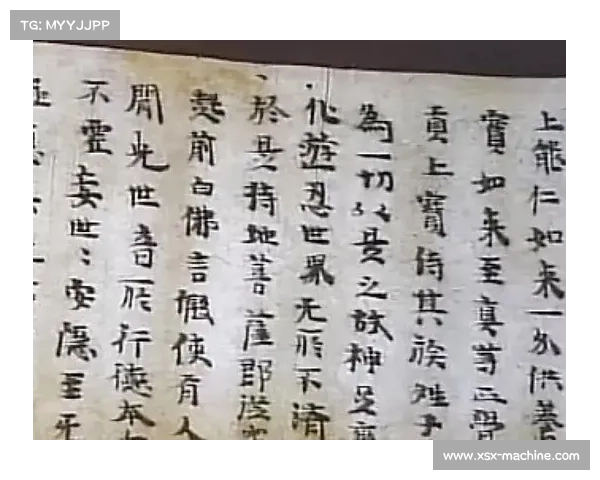 TG: MYYJJPP
上能仁如来一分供養
寶如来至真等正覺
貢上寶侍其族姓子
為一切以是之故神足
化遊忍世界无所不濟
於是持地菩薩即從
起前白佛言假使有人
聞光世音所行德本
不虛妄世〻安隱至无
www.xsx-machine.com